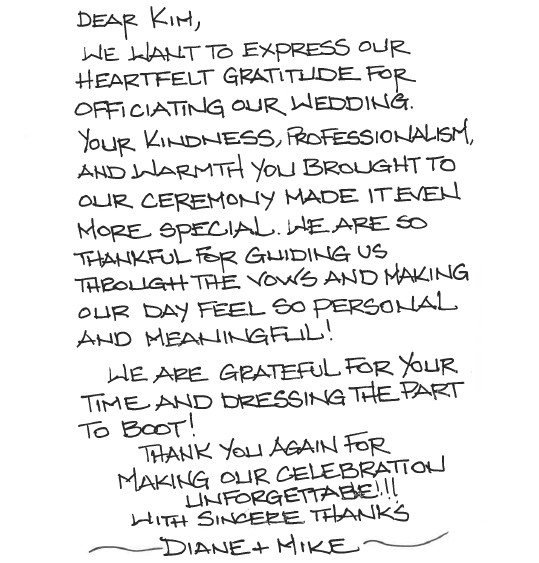 DEAR KIM,
WE WANT TO EXPRESS OUR
HEARTFELT GRATITUDE FOR
OFFICIATING OUR WEDDING.
YOUR KINDNESS, PROFESSIONALISM,
AND WARMTH YOU BROUGHT TO
OUR CEREMONY MADE IT EVEN
MORE SPECIAL. WE ARE SO
THANKFUL FOR GUIDING US
THROUGH THE VOWS AND MAKING
OUR DAY FEEL SO PERSONAL
AND MEANINGFUL!
WE ARE GRATEFUL FOR YOUR
TIME AND DRESSING THE PART
TO BOOT!
THANK YOU AGAIN FOR
MAKING OUR CELEBRATION
UNFORGETTABLE!!!
WITH SINCERE THANKS
DIANE + MIKE